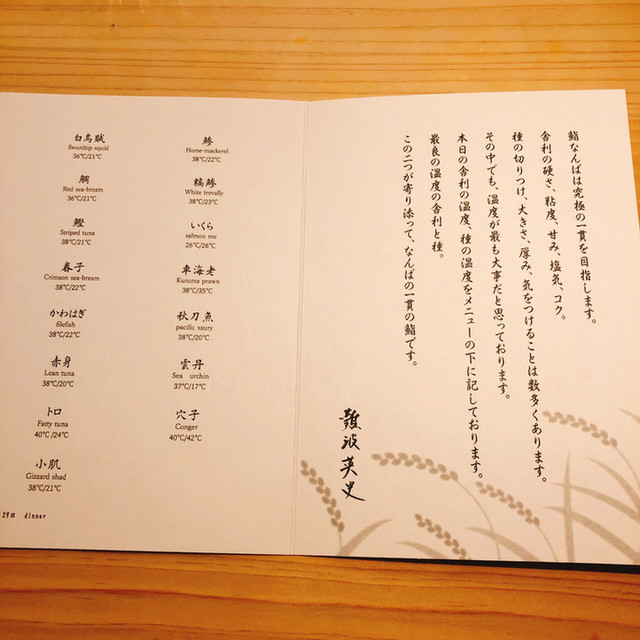 白烏賊
Swordtip squid
36℃/21℃
鯛
Red sea-bream
36℃/21℃
鰹
Striped tuna
38℃/21℃
春子
Crimson sea-bream
38℃/22℃
かわはぎ
filefish
38℃/22℃
赤身
Lean tuna
38℃/20℃
トロ
Fatty tuna
40℃/24℃
小肌
Gizzard shad
38℃/21℃
鯵
Horse-mackerel
38℃/22℃
縞鯵
White trevally
38℃/23℃
いくら
salmon roe
26℃/26℃
車海老
Kuruma prawn
38℃/35℃
秋刀魚
pacific saury
38℃/20℃
雲丹
Sea urchin
37℃/17℃
穴子
Conger
40℃/42℃
29日 dinner
鮨なんばは究極の一貫を目指します。
舎利の硬さ、粘度、甘み、塩気、コク。
種の切りつけ、大きさ、厚み、気をつけることは数多くあります。
その中でも、温度が最も大事だと思っております。
本日の舎利の温度、種の温度をメニューの下に記しております。
最良の温度の舎利と種。
この二つが寄り添って、なんばの一貫の鮨です。
難波英史